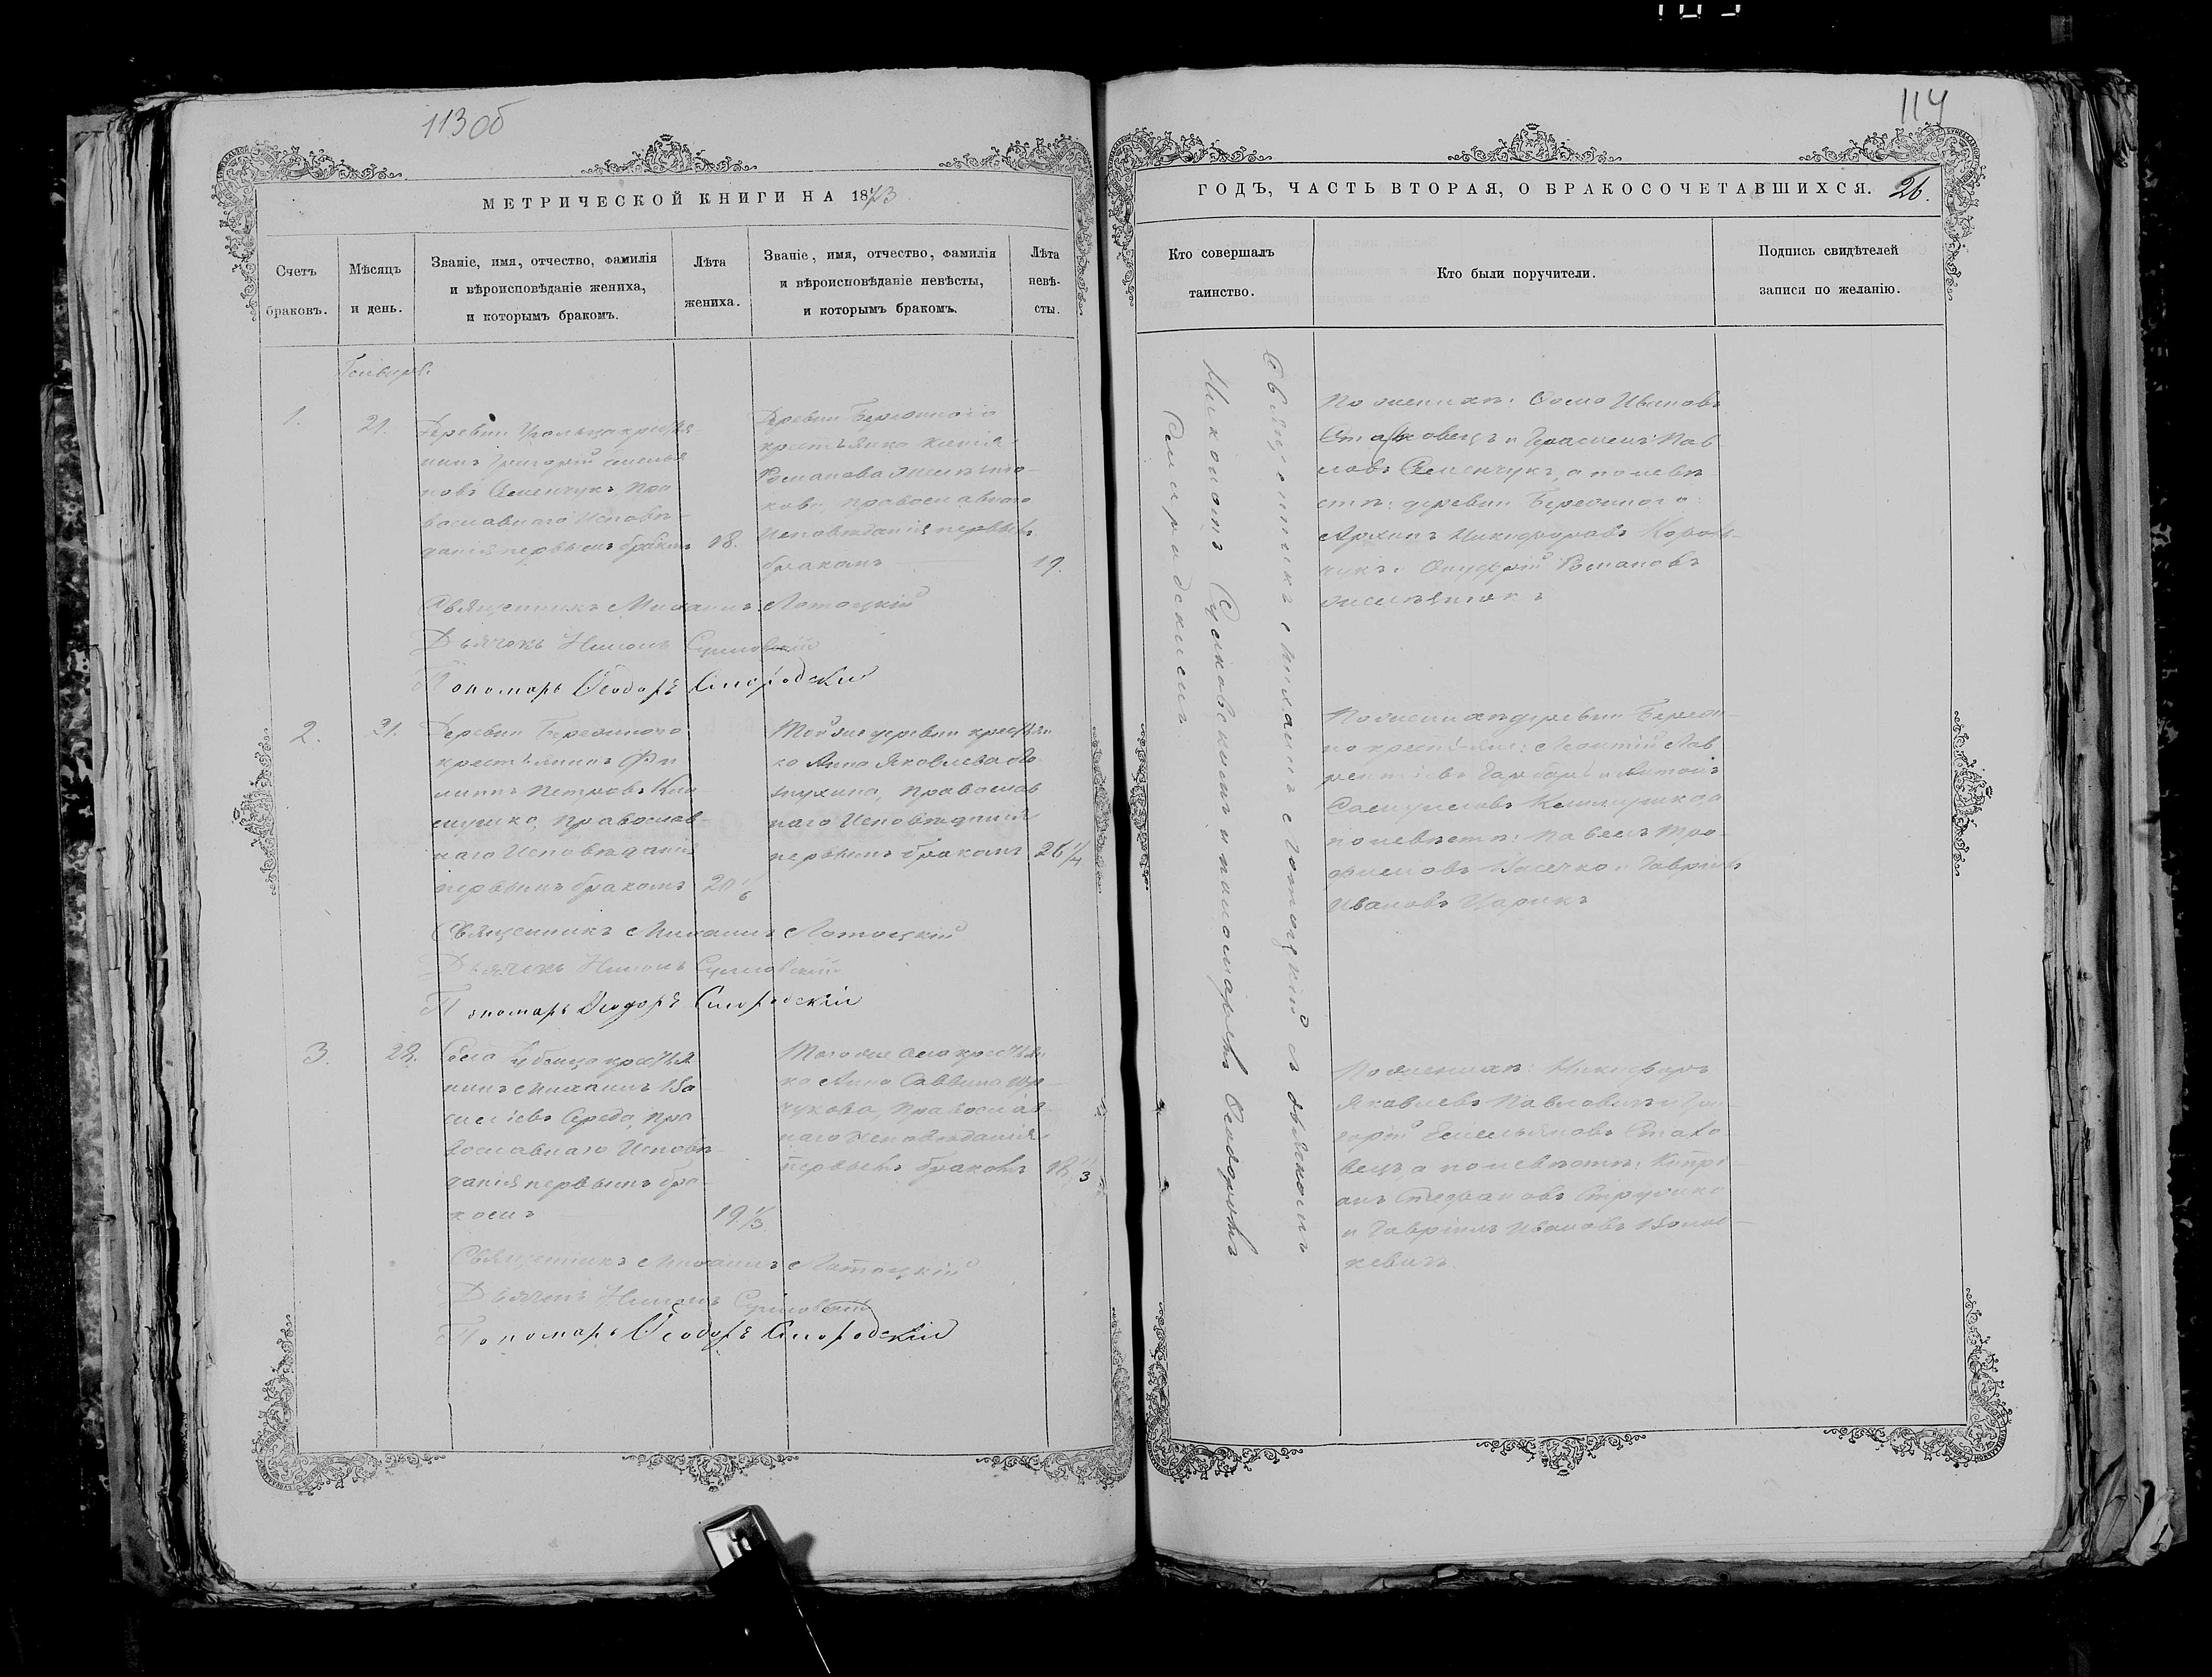 113об
МЕТРИЧЕСКОЙ КНИГИ НА 1873
Счетъ браковъ.
Мѣсяцъ и день.
Званіе, имя, отчество, фамилія
и вѣроисповѣданіе жениха,
и которымъ бракомъ.
Лѣта жениха.
Званіе, имя, отчество, фамилія
и вѣроисповѣданіе невѣсты,
и которымъ бракомъ.
Лѣта невѣ-
сты.
Генваръ.
1.
21.
Деревни крестья-
нинъ Григорій Емелья
новъ Семенчукъ, Пра
вославнаго Исповѣ-
данія первымъ бракомъ
18.
Деревни Бережного
крестьянка Ксенія
Романова
православнаго
Исповѣданія первымъ
бракомъ
19.
Священникъ Михаилъ Лотоцкій
Дьячекъ Никонъ
Пономарь Ѳеодоръ Смородскій
2.
21.
Деревни Бережного
крестьянинъ Фи
липпъ Петровъ Кли
мушко, Православ-
наго Исповѣданія
первымъ бракомъ
20 1/6
Той же деревни крестьян
ка Анна Яковлева
Православ
наго Исповѣданія
первымъ бракомъ
26 1/4
Священникъ Михаилъ Лотоцкій
Дьячекъ Никонъ
Пономарь Ѳеодоръ Смородскій
3.
28.
Села крестья
нинъ Михаилъ Ва
силіевъ Середа, Пра
вославнаго Исповѣ-
данія первымъ бра-
комъ
19 1/3
Того же села крестьян
ка Анна Саввина
Православ-
наго Исповѣданія
первымъ бракомъ
18 1/3
Священникъ Михаилъ Лотоцкій
Дьячекъ Никонъ
Пономарь Ѳеодоръ Смородскій
114
ГОДЪ, ЧАСТЬ ВТОРАЯ, О БРАКОСОЧЕТАВШИХСЯ.
26.
Кто совершалъ
таинство.
Кто были поручители.
Подпись свидѣтелей
записи по желанію.
Священникъ Михаилъ Лотоцкій съ дьячкомъ
Никономъ и пономаремъ Ѳеодоромъ
Смородскимъ.
По женихѣ: Ѳома Ивановъ
Стаховецъ и Герасимъ Пав
ловъ Семенчукъ, а по невѣ
стѣ: деревни Бережного
Архипъ Никифоровъ Король-
чукъ и Онуфрій Романовъ
По женихѣ деревни Береж-
но крестьяне: Леонтій Лав
рентіевъ и Антонъ
Самуиловъ Климушко, а
по невѣстѣ: Павелъ Тро-
фимовъ и Гавріилъ
Ивановъ Царикъ
По женихѣ: Никифоръ
Яковлевъ Павловичъ и Гри-
горій Емельяновъ Стахо
вецъ, а по невѣстѣ: Кипрі-
анъ Стефановъ
и Гавріилъ Ивановъ
кевичъ.